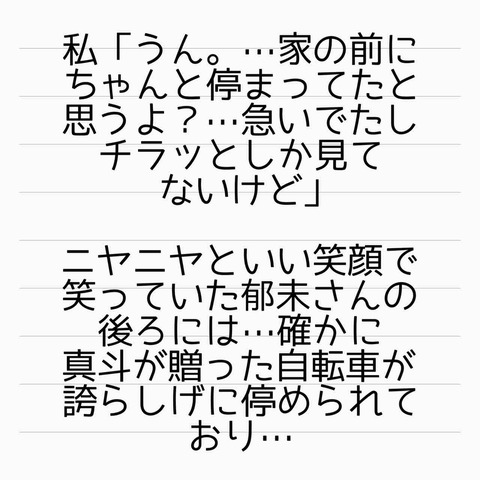 私「うん。…家の前に
ちゃんと停まってたと
思うよ？…急いでたし
チラッとしか見て
ないけど」
ニヤニヤといい笑顔で
笑っていた郁未さんの
後ろには…確かに
真斗が贈った自転車が
誇らしげに停められて
おり…